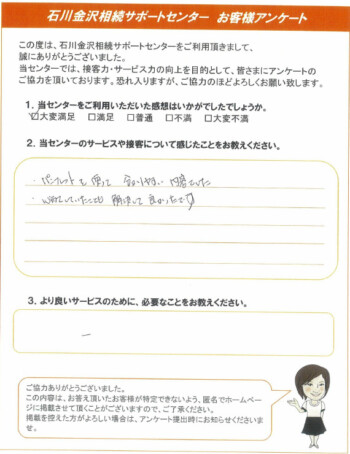 石川金沢相続サポートセンター お客様アンケート
この度は、石川金沢相続サポートセンターをご利用頂きまして、
誠にありがとうございました。
当センターでは、接客力・サービス力の向上を目的として、皆さまにアンケートの
ご協力を頂いております。恐れ入りますが、ご協力のほどよろしくお願い致します。
1．当センターをご利用いただいた感想はいかがでしたでしょうか。
☑大変満足 □満足 □普通 □不満 □大変不満
2．当センターのサービスや接客について感じたことをお教えください。
・パンフレットを使って 分かりやすい 内容でした
・していたことも 解決して良かったです
3．より良いサービスのために、必要なことをお教えください。
ー
ご協力ありがとうございました。
この内容は、お答え頂いたお客様が特定できないよう、匿名でホームペー
ジに掲載させて頂くことがございますので、ご了承ください。
掲載を控えた方がよろしい場合は、アンケート提出時にお知らせくださいま
せ。